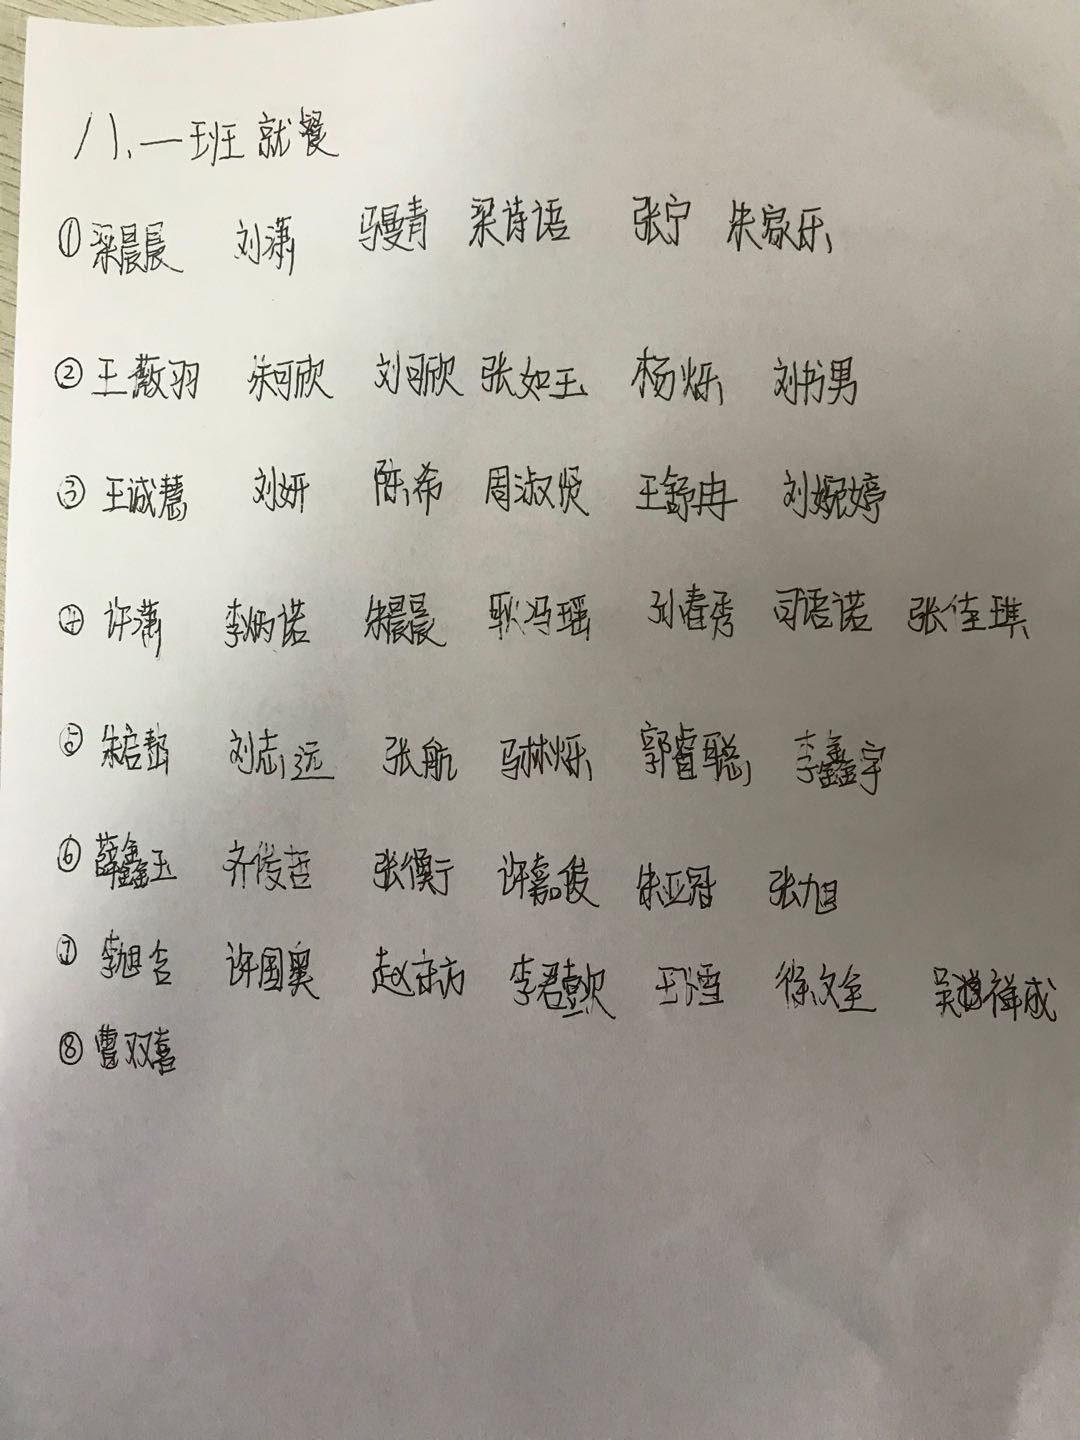 八.一班就餐
① 梁晨晨 刘潇 马曼青 梁诗语 张宁 朱家乐
② 王薇羽 朱可欣 刘可欣 张如玉 杨烁 刘书男
③ 王诚慧 刘妍 陈希 周淑贤 王舒冉 刘婉婷
④ 许潇 李炳诺 朱晨晨 耿冯瑶 孙春秀 司语诺 张佳琪
⑤ 刘志远 张航 马林烁 郭睿聪 李鑫宇
⑥ 薛鑫玉 齐俊哲 张衡宁 许嘉俊 朱亚冠 张旭
⑦ 李旭 许国奥 赵京方 徐文全
⑧ 曹双喜